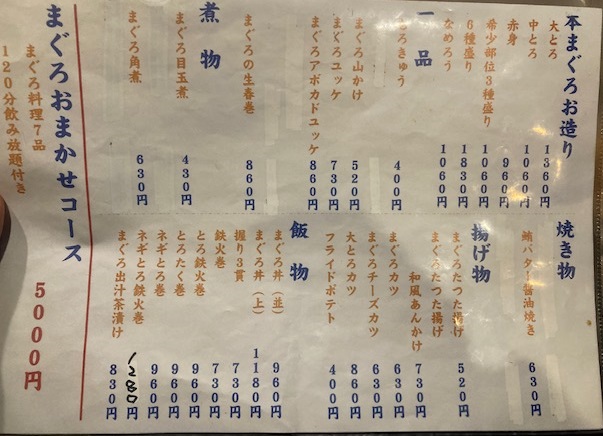 本まぐろお造り
大とろ 1360円
中とろ 1060円
赤身 960円
希少部位3種盛り 1060円
6種盛り 1830円
なめろう 1060円
一品
とろきゅう 400円
まぐろ山かけ 520円
まぐろユッケ 730円
まぐろアボカドユッケ 860円
まぐろの生春巻 860円
煮物
まぐろ目玉煮 430円
まぐろ角煮 630円
焼き物
鮪バター醤油焼き 630円
揚げ物
まぐろたつた揚げ 520円
まぐろたつた揚げ
和風あんかけ 730円
まぐろカツ 630円
まぐろチーズカツ 630円
大とろカツ 860円
フライドポテト 400円
飯物
まぐろ丼（並） 960円
まぐろ丼（上） 1180円
握り3貫 730円
鉄火巻 730円
とろ鉄火巻 960円
とろたく巻 960円
ネギとろ巻 960円
ネギとろ鉄火巻 1280円
まぐろ出汁茶漬け 830円
まぐろおまかせコース
まぐろ料理7品
120分飲み放題付き
5000円